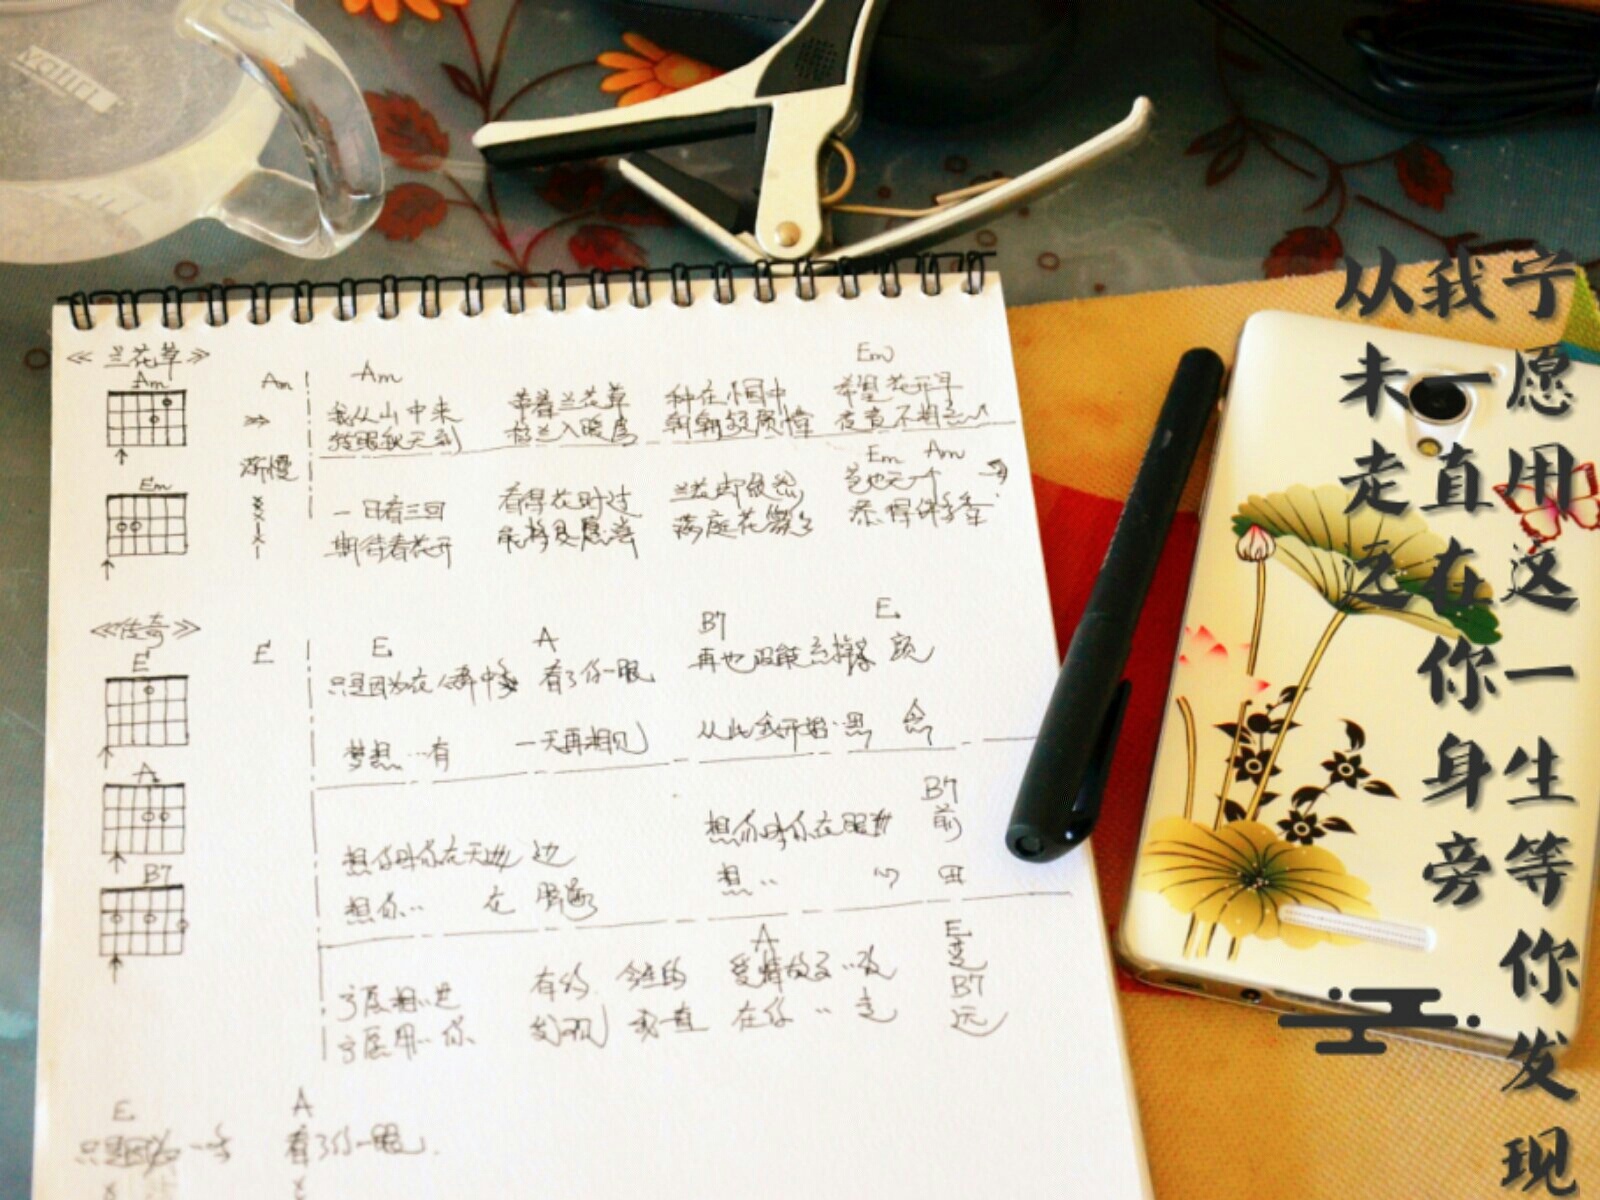 《兰花草》
Am
Em
Am
Am
Em
我从山中来 带着兰花草 种在小园中 希望花开早
转眼秋天到 移兰入暖房 朝朝频顾惜 夜夜不相忘
渐慢
Em Am
一日看三回 看得花时过 兰花却依然 苞也无一个
期待春花开 能将夙愿偿 满庭花簇簇 添得许多香
《传奇》
E
A
B7
E
E A B7 E
只是因为在人群中多 看了你一眼 再也没能忘掉容颜
梦想…有 一天再相见 从此我开始 思 念
B7
想你时你在天边 边 想你时你在眼 前
想你.. 在 脑海 想.. 心 田
A E
宁愿相..是 有约 今生的 爱情故事..改 变
B7
宁愿用..你 发现 我一直 在你.. 走 远
E A
只是因为 看了你一眼.
宁愿用这一生等你发现
我一直在你身旁
从未走远